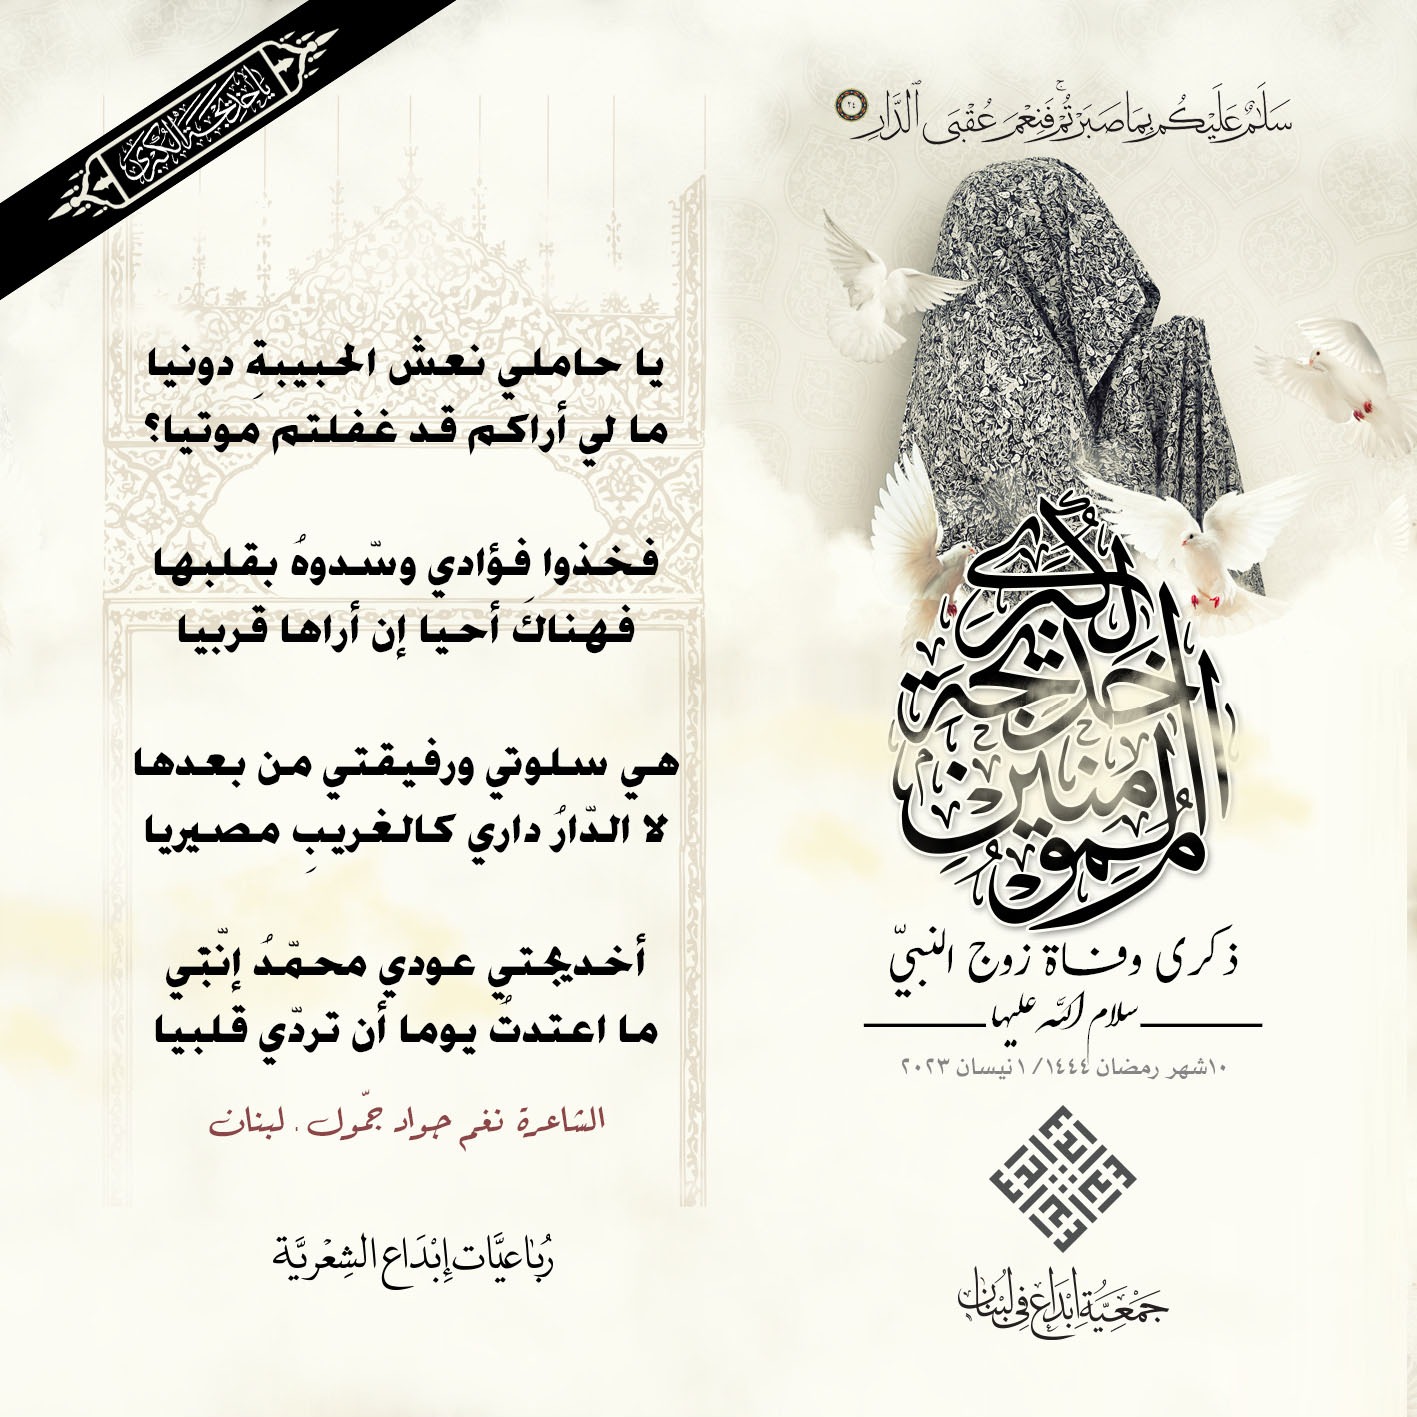 يا خديجة الكبرى
سَلَٰمٌ عَلَيْكُم بِمَا صَبَرْتُمْ ۚ فَنِعْمَ عُقْبَى ٱلدَّارِ ٢٤
يا حاملي نعش الحبيبةِ دونيا
ما لي أراكم قد غفلتم موتيا؟
فخذوا فؤادي وسّدوهُ بقلبها
فهناكَ أحيا إن أراها قربيا
هي سلوتي ورفيقتي من بعدها
لا الدّارُ داري كالغريبِ مصيريا
أخديجتي عودي محمّدُ إنّني
ما اعتدتُ يوما أن تردّي قلبيا
الشاعرة نغم جواد جمّول . لبنان
رُبَاعيَّات إِبْدَاع الشِعْريَّة
خديجة الكبرى
أم المؤمنين
ذكرى وفاة زوج النبيّ
سلام الله عليها
١٠ شهر رمضان ١٤٤٤ / ١ نيسان ٢٠٢٣
جَمْعِيَّة إِبْدَاع فِي لُبْنَان